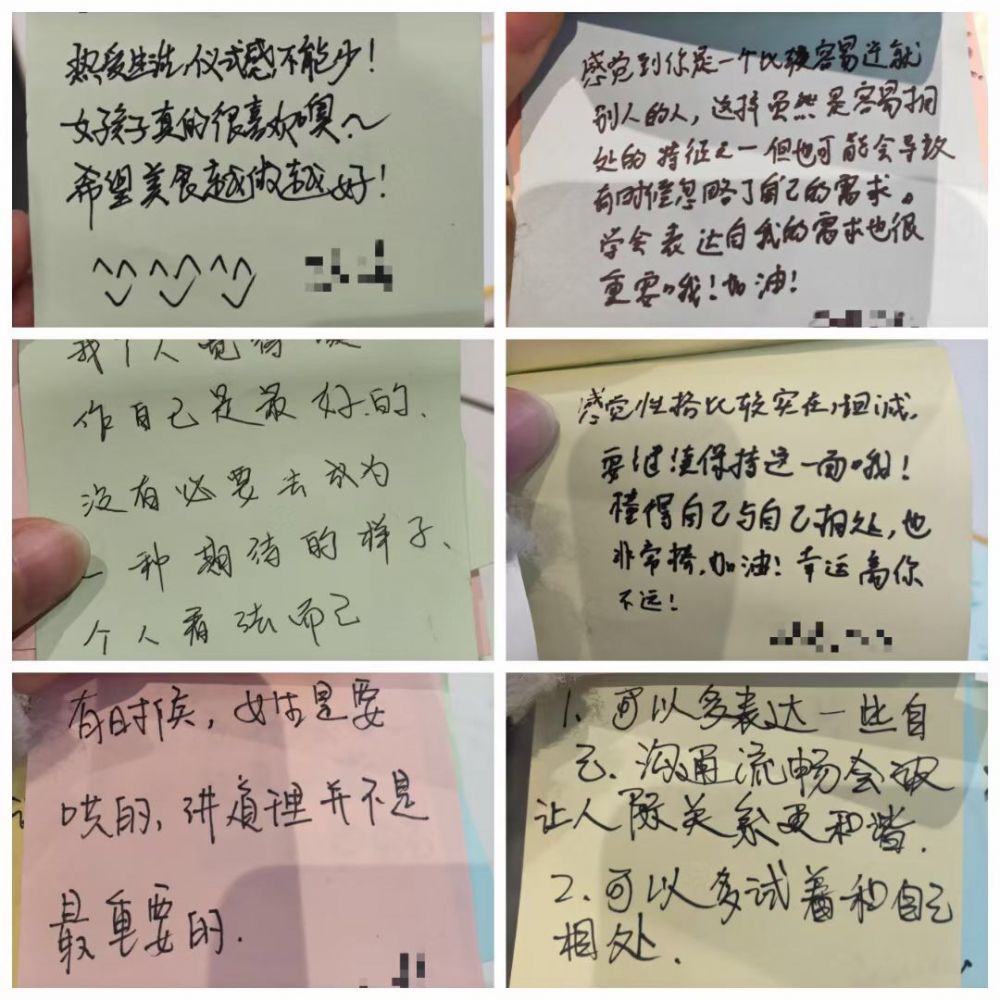 热爱生活,仪式感不能少!
女孩子真的很喜欢噢~
希望美食越做越好!
感觉到你是一个比较容易迁就
别人的人,这样虽然是容易相
处的特征之一但也可能会导致
有时候忽略了自己的需求。
学会表达自我的需求也很
重要哦!加油!
我个人觉得
作自己是最好的、
没有必要去成为
一种期待的样子、
个人看法而已
感觉性格比较实在,坦诚,
要继续保持这一面哦!
懂得自己与自己相处,也
非常棒,加油!幸运离你
不远!
有时候,女生是要
哄的,讲道理并不是
最重要的.
1、可以多表达一些自
己、沟通流畅会
让人际关系更和谐.
2、可以多试着和自己
相处.